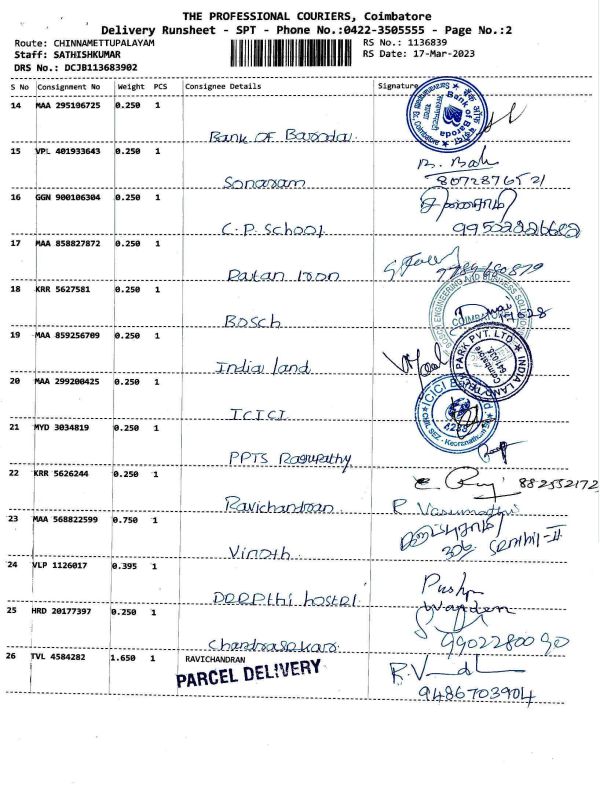 THE PROFESSIONAL COURIERS, Coimbatore
Delivery Runsheet - SPT - Phone No.:0422-3505555 - Page No.:2
Route: CHINNAMETTUPALAYAM RS No.: 1136839
Staff: SATHISHKUMAR RS Date: 17-Mar-2023
DRS No.: DCJB113683902
S No Consignment No Weight PCS Consignee Details Signature
14 MAA 295106725 0.250 1
Bank OF Baroda
Bank of Baroda
15 VPL 401933643 0.250 1
Sonaram
8072876521
16 GGN 900106304 0.250 1
C.P. School
17 MAA 858827872 0.250 1
Ratan Iron
18 KRR 5627581 0.250 1
Bosch
BOSCH ENGINEERING AND BUSINESS SOLUTIONS
COIMBATORE
19 MAA 859256709 0.250 1
India land
INDIA LAND PARK PVT. LTD.
Coimbatore
20 MAA 299200425 0.250 1
ICICI
ICICI
21 MYD 3034819 0.250 1
PPTS Ragupathy
22 KRR 5626244 0.250 1
882552172
Ravichandran
R. Vasumathi
23 MAA 568822599 0.750 1
Vinoth
24 VLP 1126017 0.395 1
Deepthi hostel
Warden
25 HRD 20177397 0.250 1
Chandrasekar
9902280090
26 TVL 4584282 1.650 1 RAVICHANDRAN
PARCEL DELIVERY
9486703904